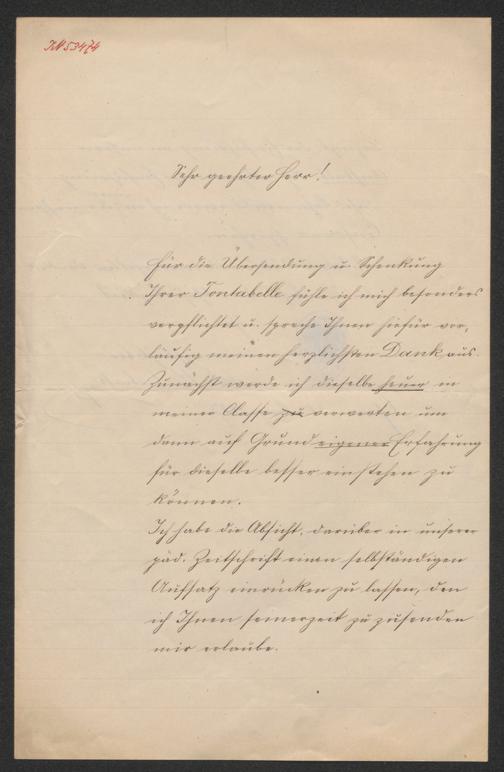 IN 53474
Sehr geehrter Herr!
Für die Übersendung u. Schenkung
Ihrer Tontabelle fühle ich mich besonders
verpflichtet u. spreche Ihnen hiefür vor,
läufig meinen herzlichsten Dank aus.
Zunächst werde ich dieselbe heuer in
meiner Classe zu verwerten um
dann auf Grund eigener Erfahrung
für dieselbe besser einstehen zu
können.
Ich habe die Absicht, darüber in unserer
päd. Zeitschrift einen selbständigen
Aufsatz einrücken zu lassen, den
ich Ihnen seinerzeit zu zusenden
mir erlaube.